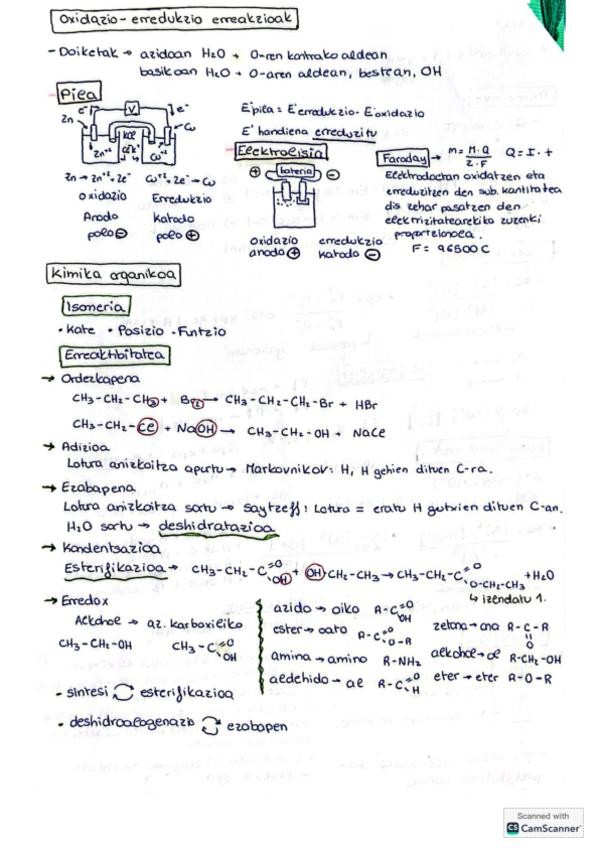 Oxidazio-erredukzio erreakzioak
- Doiketak → azidoan H₂O + O-ren kontrako aldean
basikoan H₂O + O-aren aldean, bestean, OH
- Pilea
e⁻ V e⁻
Zn KCl Cu
Zn⁺² Cu⁺²
Zn → Zn⁺² + 2e⁻ Cu⁺² + 2e⁻ → Cu
Oxidazio Erredukzio
Anodo Katodo
polo ⊖ polo ⊕
E°pila = E°erredukzio - E°oxidazio
E° handiena erreduzitu
Elektrolisia
⊕ bateria ⊖
Oxidazio erredukzio
anodo ⊕ katodo ⊖
Faraday → m = M·Q / z·F Q = I·t
Elektrodoetan oxidatzen eta
erreduzitzen den sub. kantitatea
dis zehar pasatzen den
elektrizitatearekiko zuzenki
proportzionala.
F = 96500 C
Kimika organikoa
Isomeria
• Kate • Posizio • Funtzio
Erreaktibitatea
→ Ordezkapena
CH₃-CH₂-CH₃ + Br₂ → CH₃-CH₂-CH₂-Br + HBr
CH₃-CH₂-Cl + NaOH → CH₃-CH₂-OH + NaCl
→ Adizioa
Lotura anizkoitza apurtu → Markovnikov: H, H gehien dituen C-ra.
→ Ezabapena
Lotura anizkoitza sortu → Saytzeff: Lotura = eratu H gutxien dituen C-an.
H₂O sortu → deshidratazioa
→ Kondentsazioa
Esterifikazioa → CH₃-CH₂-C=O OH + OH CH₂-CH₃ → CH₃-CH₂-C=O O-CH₂-CH₃ + H₂O
↳ izendatu 1.
→ Erredox
Alkohol → az. karboxiliko
CH₃-CH₂-OH CH₃-C=O OH
- sintesi ⇄ esterifikazioa
- deshidroalogenazio ⇄ ezabapen
azido → oiko R-C=O OH
ester → oato R-C=O O-R
amina → amino R-NH₂
aldehido → al R-C=O H
zetona → ona R-C-R O
alkohol → ol R-CH₂-OH
eter → eter R-O-R
Scanned with
CS CamScanner